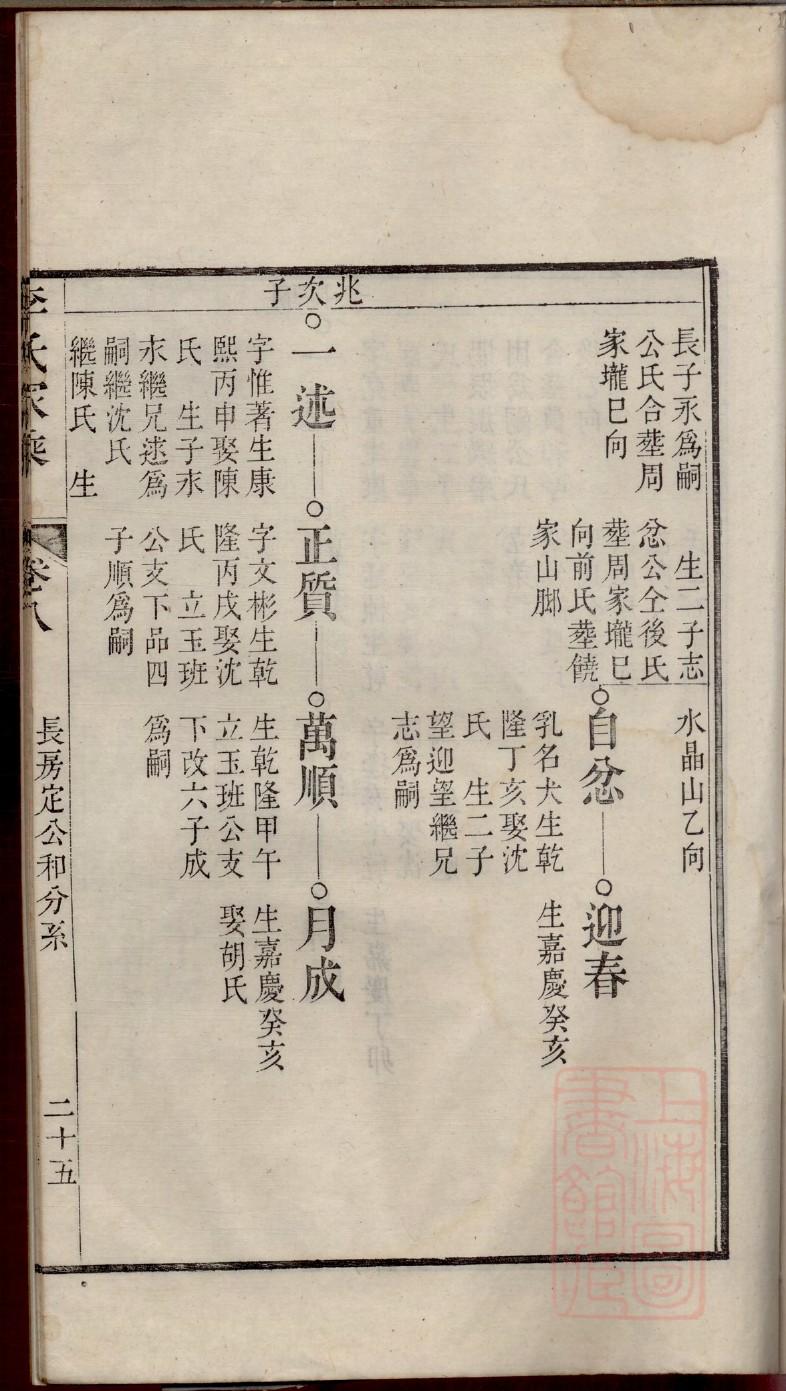 長子承爲嗣
公氏合塟周
家壠巳向
生二子志
忿公仝後氏
塟周家壠巳
向前氏塟饒
家山脚
水晶山乙向
自忿
乳名犬生乾
隆丁亥娶沈
氏 生二子
望迎望繼兄
志爲嗣
迎春
生嘉慶癸亥
兆次子
一述
字惟著生康
熙丙申娶陳
氏 生子求
求繼兄逑爲
嗣繼沈氏
繼陳氏 生
正質
字文彬生乾
隆丙戌娶沈
氏 立玉班
公支下品四
子順爲嗣
萬順
生乾隆甲午
立玉班公支
下改六子成
爲嗣
月成
生嘉慶癸亥
娶胡氏
李氏家乘
卷八
長房定公和分系
二十五
上海圖書館藏